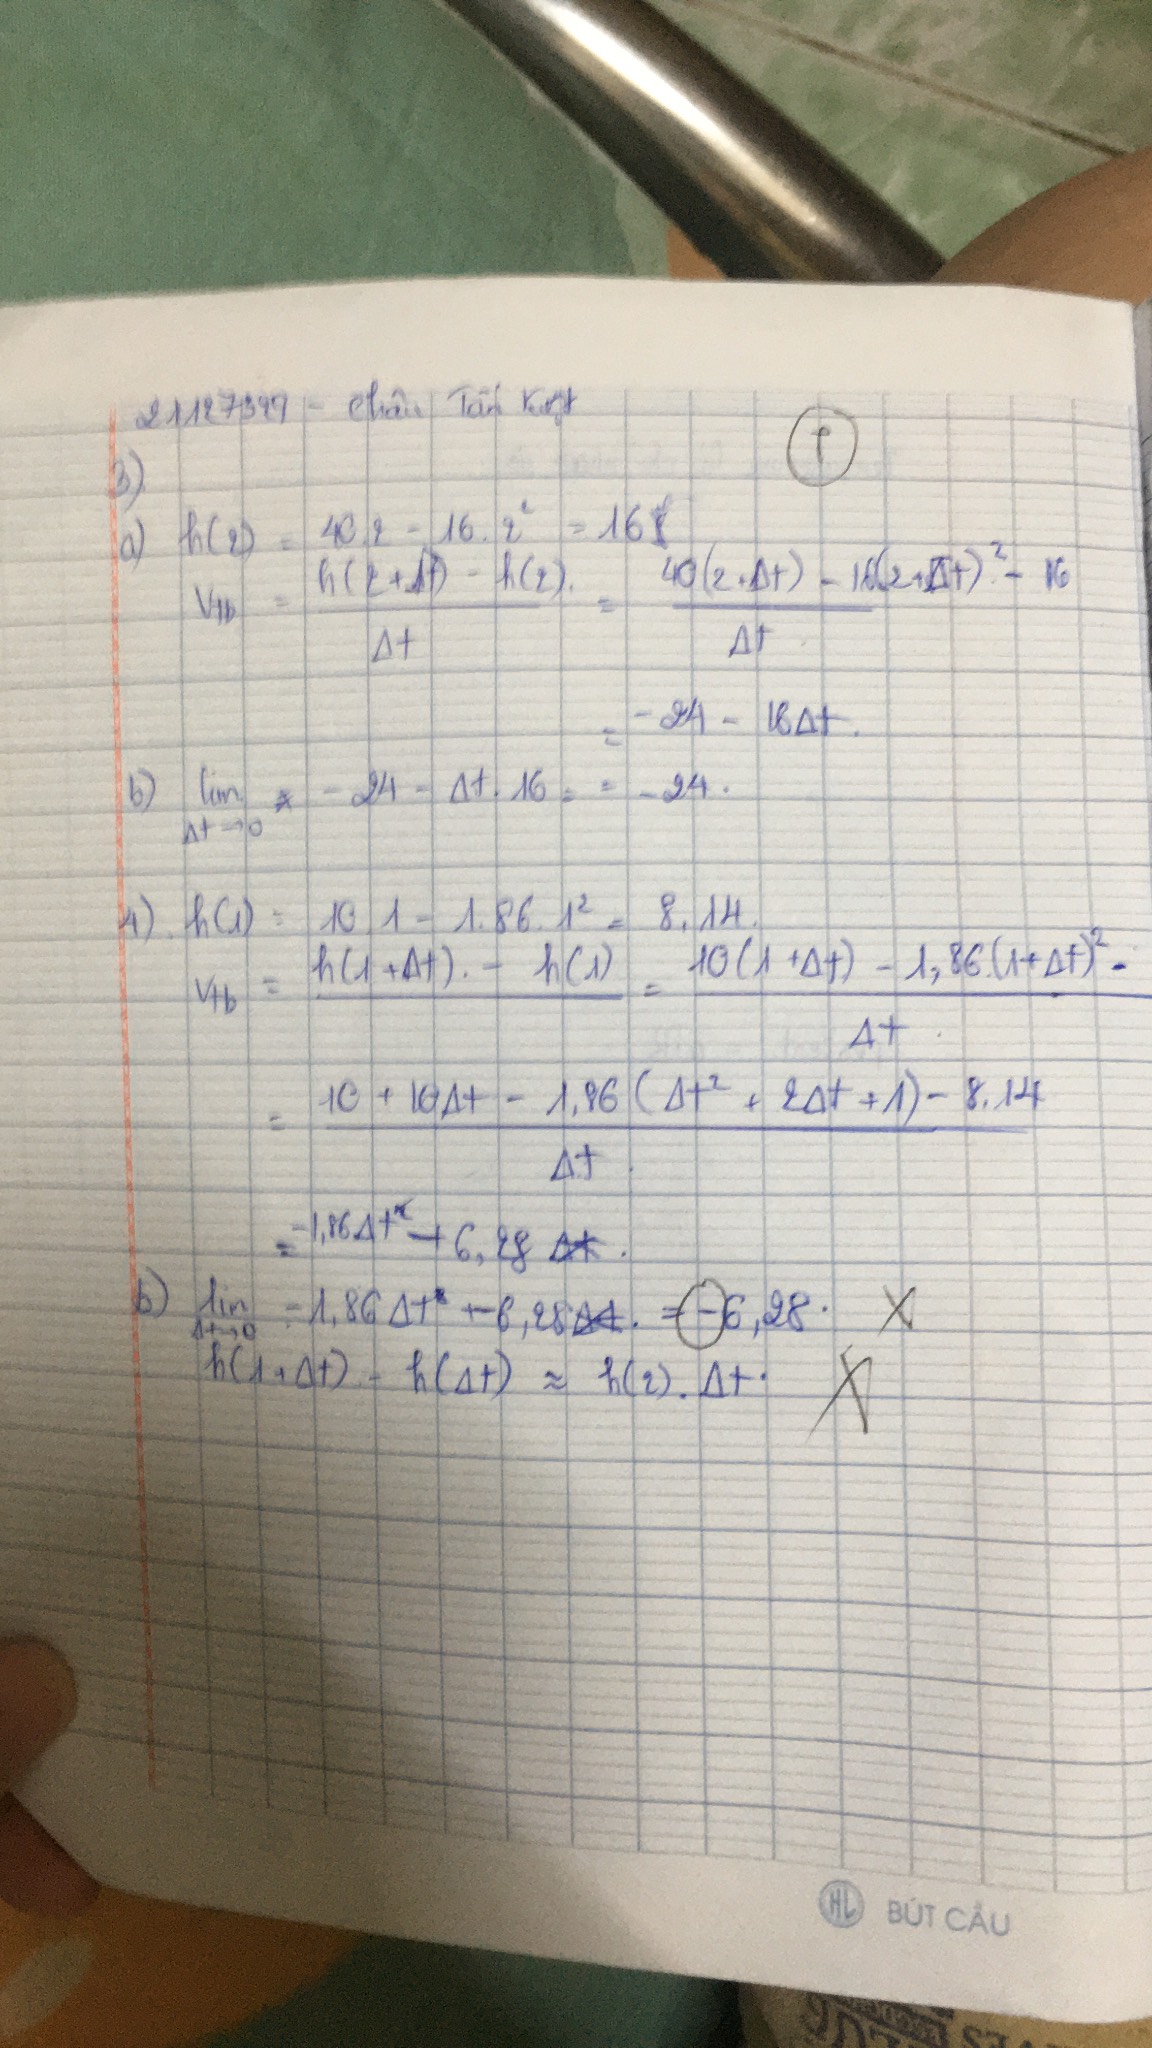 21127329 - Châu Tấn Kiệt
3)
a) h(2) = 40.2 - 16.2² = 16
Vtb = h(2+Δt) - h(2). / Δt = 40(2+Δt) - 16(2+Δt)² - 16 / Δt
= -24 - 16Δt.
b) lim Δt→0 -24 - Δt.16 = = -24.
4). h(1) = 10.1 - 1.86.1² = 8.14.
Vtb = h(1+Δt). - h(1) / Δt = 10(1+Δt) - 1,86.(1+Δt)² - / Δt.
= 10 + 10Δt - 1,86(Δt² + 2Δt + 1) - 8.14 / Δt.
= -1,86Δt + 6,28.
b) lim Δt→0 -1,86Δt + -6,28. = -6,28.
h(1+Δt) - h(Δt) ≈ h(2).Δt.
HL BÚT CẦU